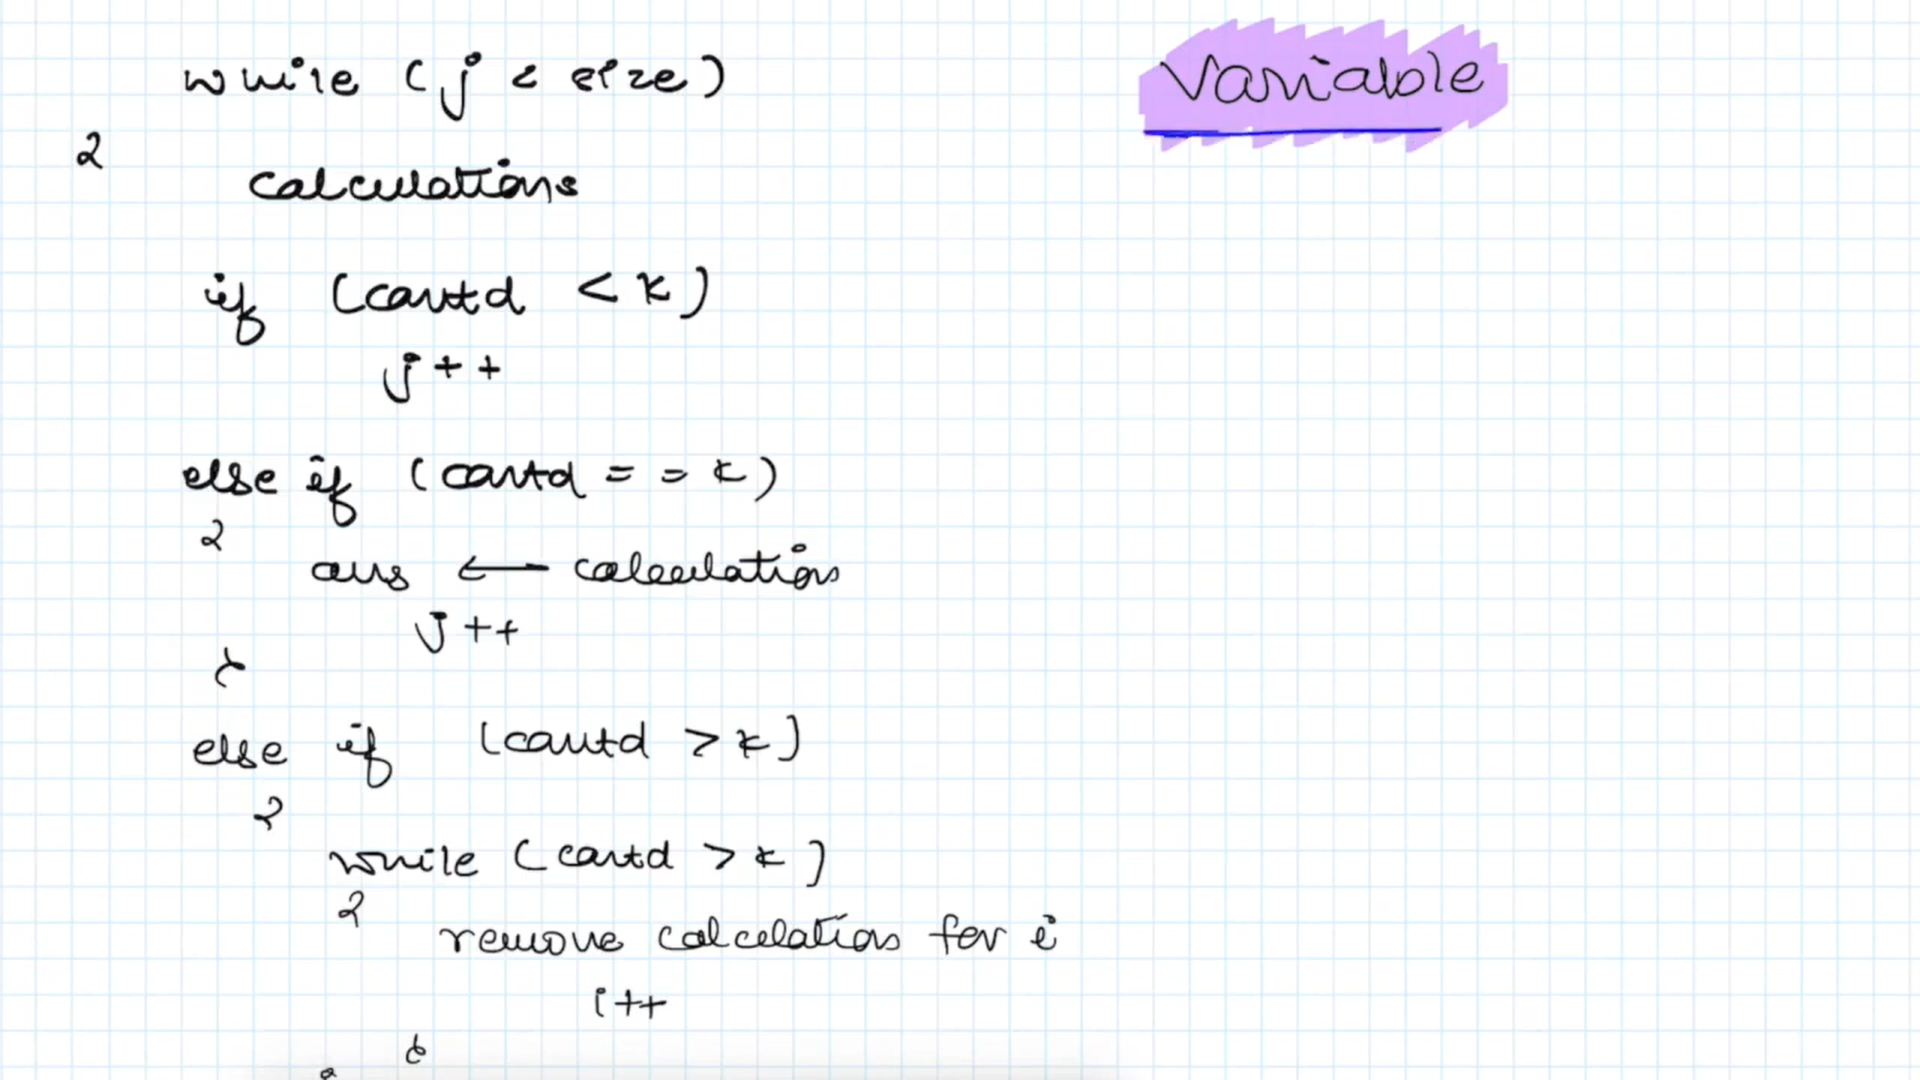 while (j < size)
Variable
{
calculations
if (contd < k)
j++
else if (contd == k)
{
ans ← calculation
j++
}
else if (contd > k)
{
while (contd > k)
{
remove calculation for i
i++
}